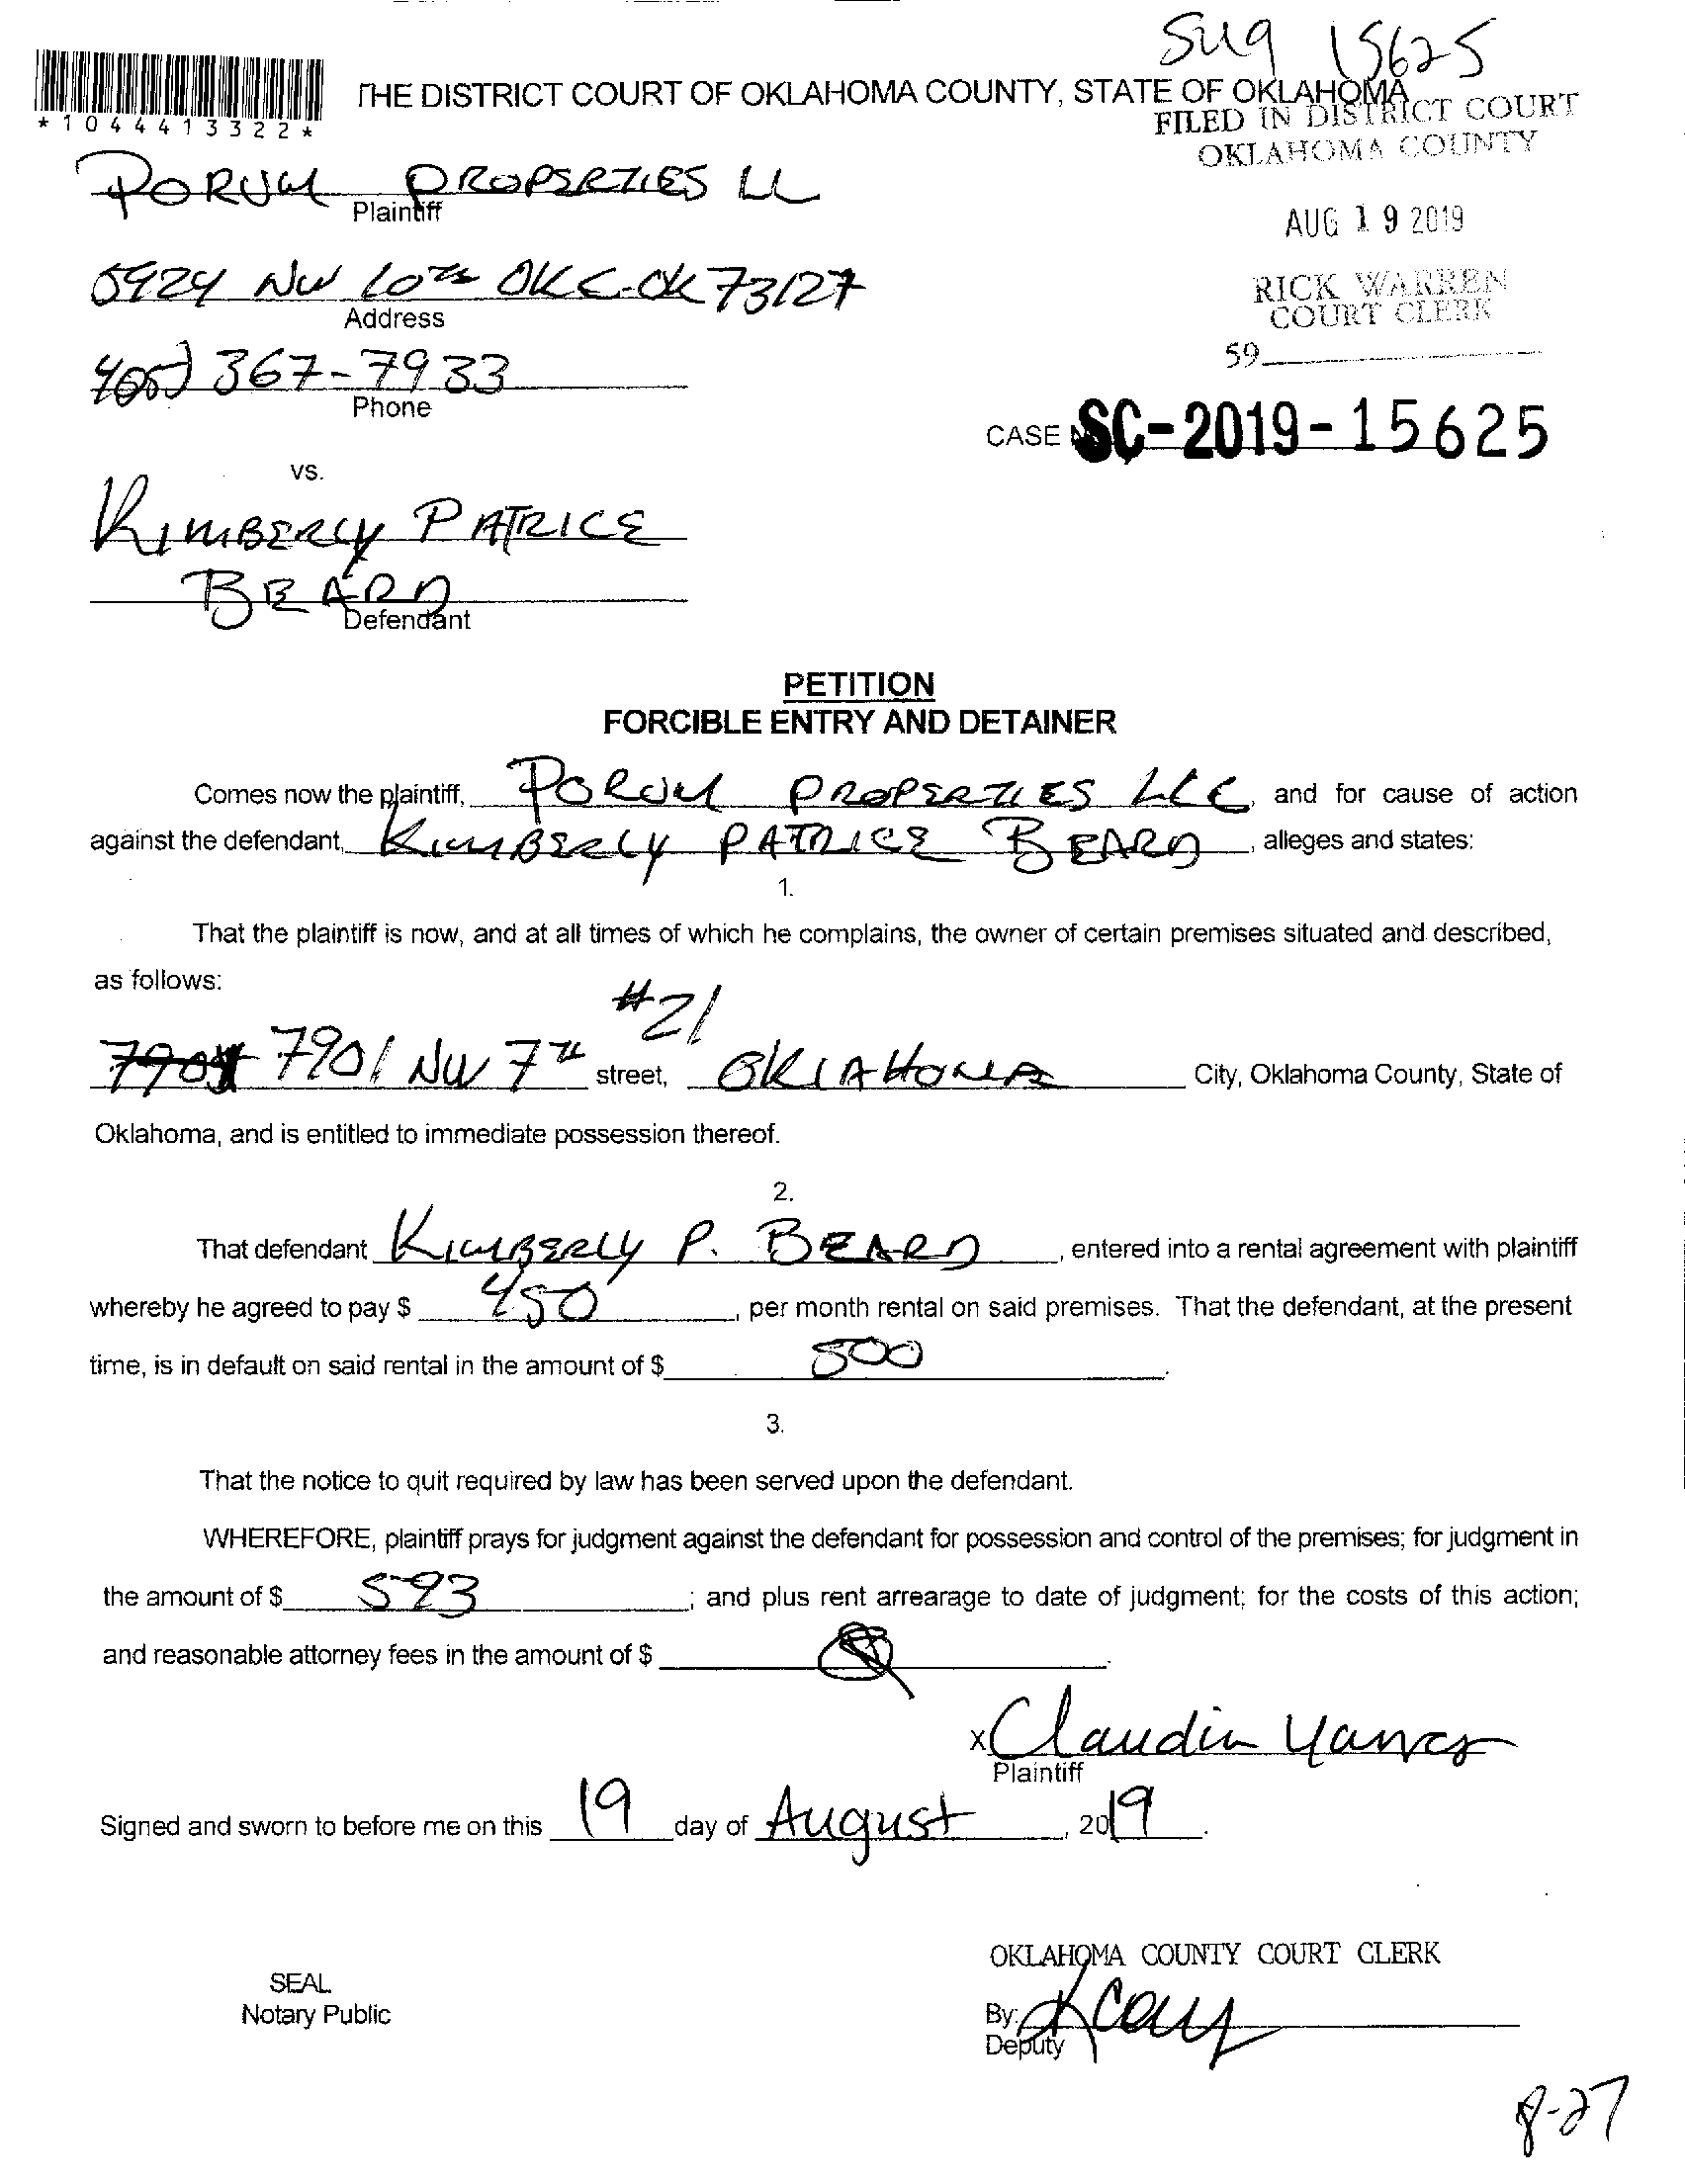 SM9 15625
*1044413322*
THE DISTRICT COURT OF OKLAHOMA COUNTY, STATE OF OKLAHOMA
FILED IN DISTRICT COURT
OKLAHOMA COUNTY
PORUM PROPERTIES LL
Plaintiff
AUG 19 2019
5924 NW 10TH OKC-OK 73127
Address
RICK WARREN
COURT CLERK
405) 367-7933
Phone
59
CASE SC-2019-15625
vs.
KIMBERLY PATRICE
BEARD
Defendant
PETITION
FORCIBLE ENTRY AND DETAINER
Comes now the plaintiff, PORUM PROPERTIES LLC, and for cause of action
against the defendant, KIMBERLY PATRICE BEARD, alleges and states:
1.
That the plaintiff is now, and at all times of which he complains, the owner of certain premises situated and described,
as follows:
#21
7901 NW 7th street, OKLAHOMA City, Oklahoma County, State of
Oklahoma, and is entitled to immediate possession thereof.
2.
That defendant KIMBERLY P. BEARD, entered into a rental agreement with plaintiff
whereby he agreed to pay $ 450, per month rental on said premises. That the defendant, at the present
time, is in default on said rental in the amount of $ 500.
3.
That the notice to quit required by law has been served upon the defendant.
WHEREFORE, plaintiff prays for judgment against the defendant for possession and control of the premises; for judgment in
the amount of $ 593; and plus rent arrearage to date of judgment; for the costs of this action;
and reasonable attorney fees in the amount of $
X Claudia
Plaintiff
Signed and sworn to before me on this 19 day of August, 2019.
OKLAHOMA COUNTY COURT CLERK
SEAL
Notary Public
By:
Deputy
8-27